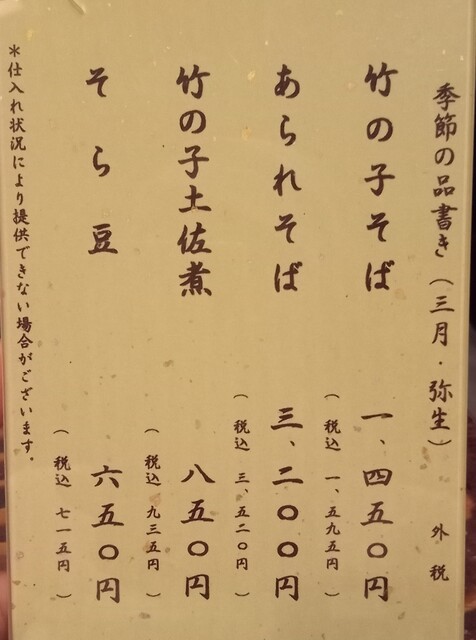 季節の品書き(三月・弥生) 外税
竹の子そば 一、四五〇円
(税込 一、五九五円)
あられそば 三、二〇〇円
(税込 三、五二〇円)
竹の子土佐煮 八五〇円
(税込 九三五円)
そら豆 六五〇円
(税込 七一五円)
*仕入れ状況により提供できない場合がございます。